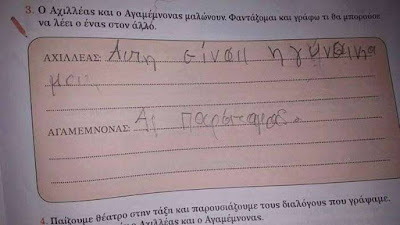 3. Ο Αχιλλέας και ο Αγαμέμνονας μαλώνουν. Φαντάζομαι και γράφω τι θα μπορούσε
να λέει ο ένας στον άλλο.
ΑΧΙΛΛΕΑΣ: Αυτη είναι η γυναίκα
μου.
ΑΓΑΜΕΜΝΟΝΑΣ: Αι παράτα μας.
4. Παίζουμε θέατρο στην τάξη και παρουσιάζουμε τους διαλόγους που γράψαμε.
ο Αχιλλέας και ο Αγαμέμνονας.